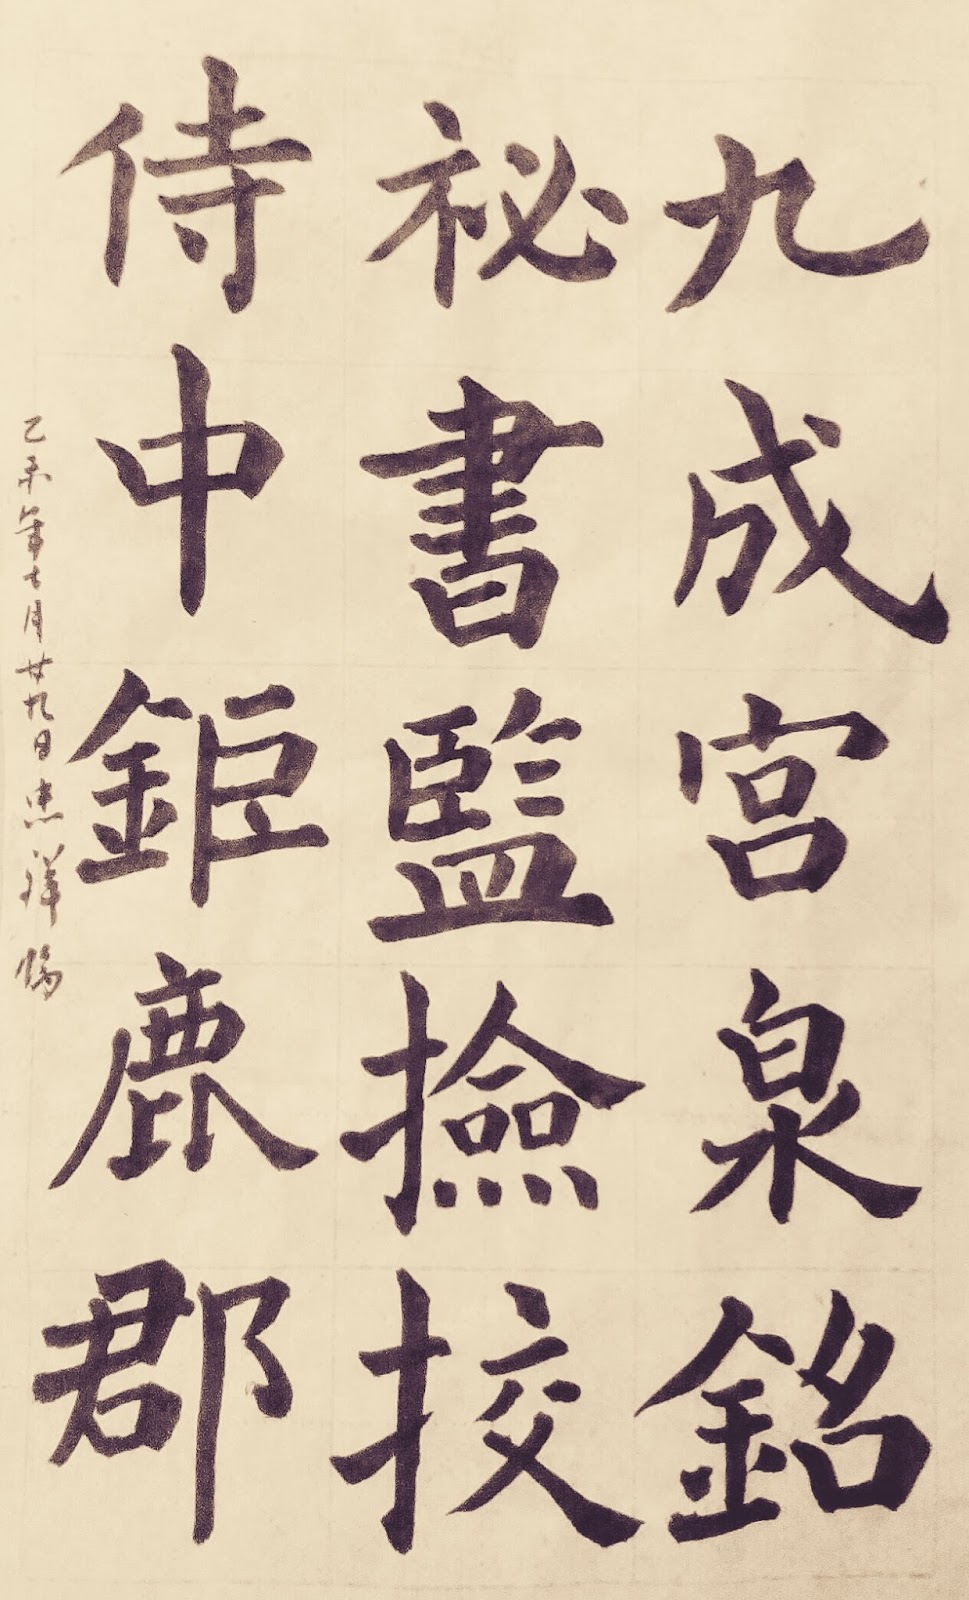 九成宮泉銘
祕書監撿挍
侍中鉅鹿郡
乙未年七月廿九日忠祥臨